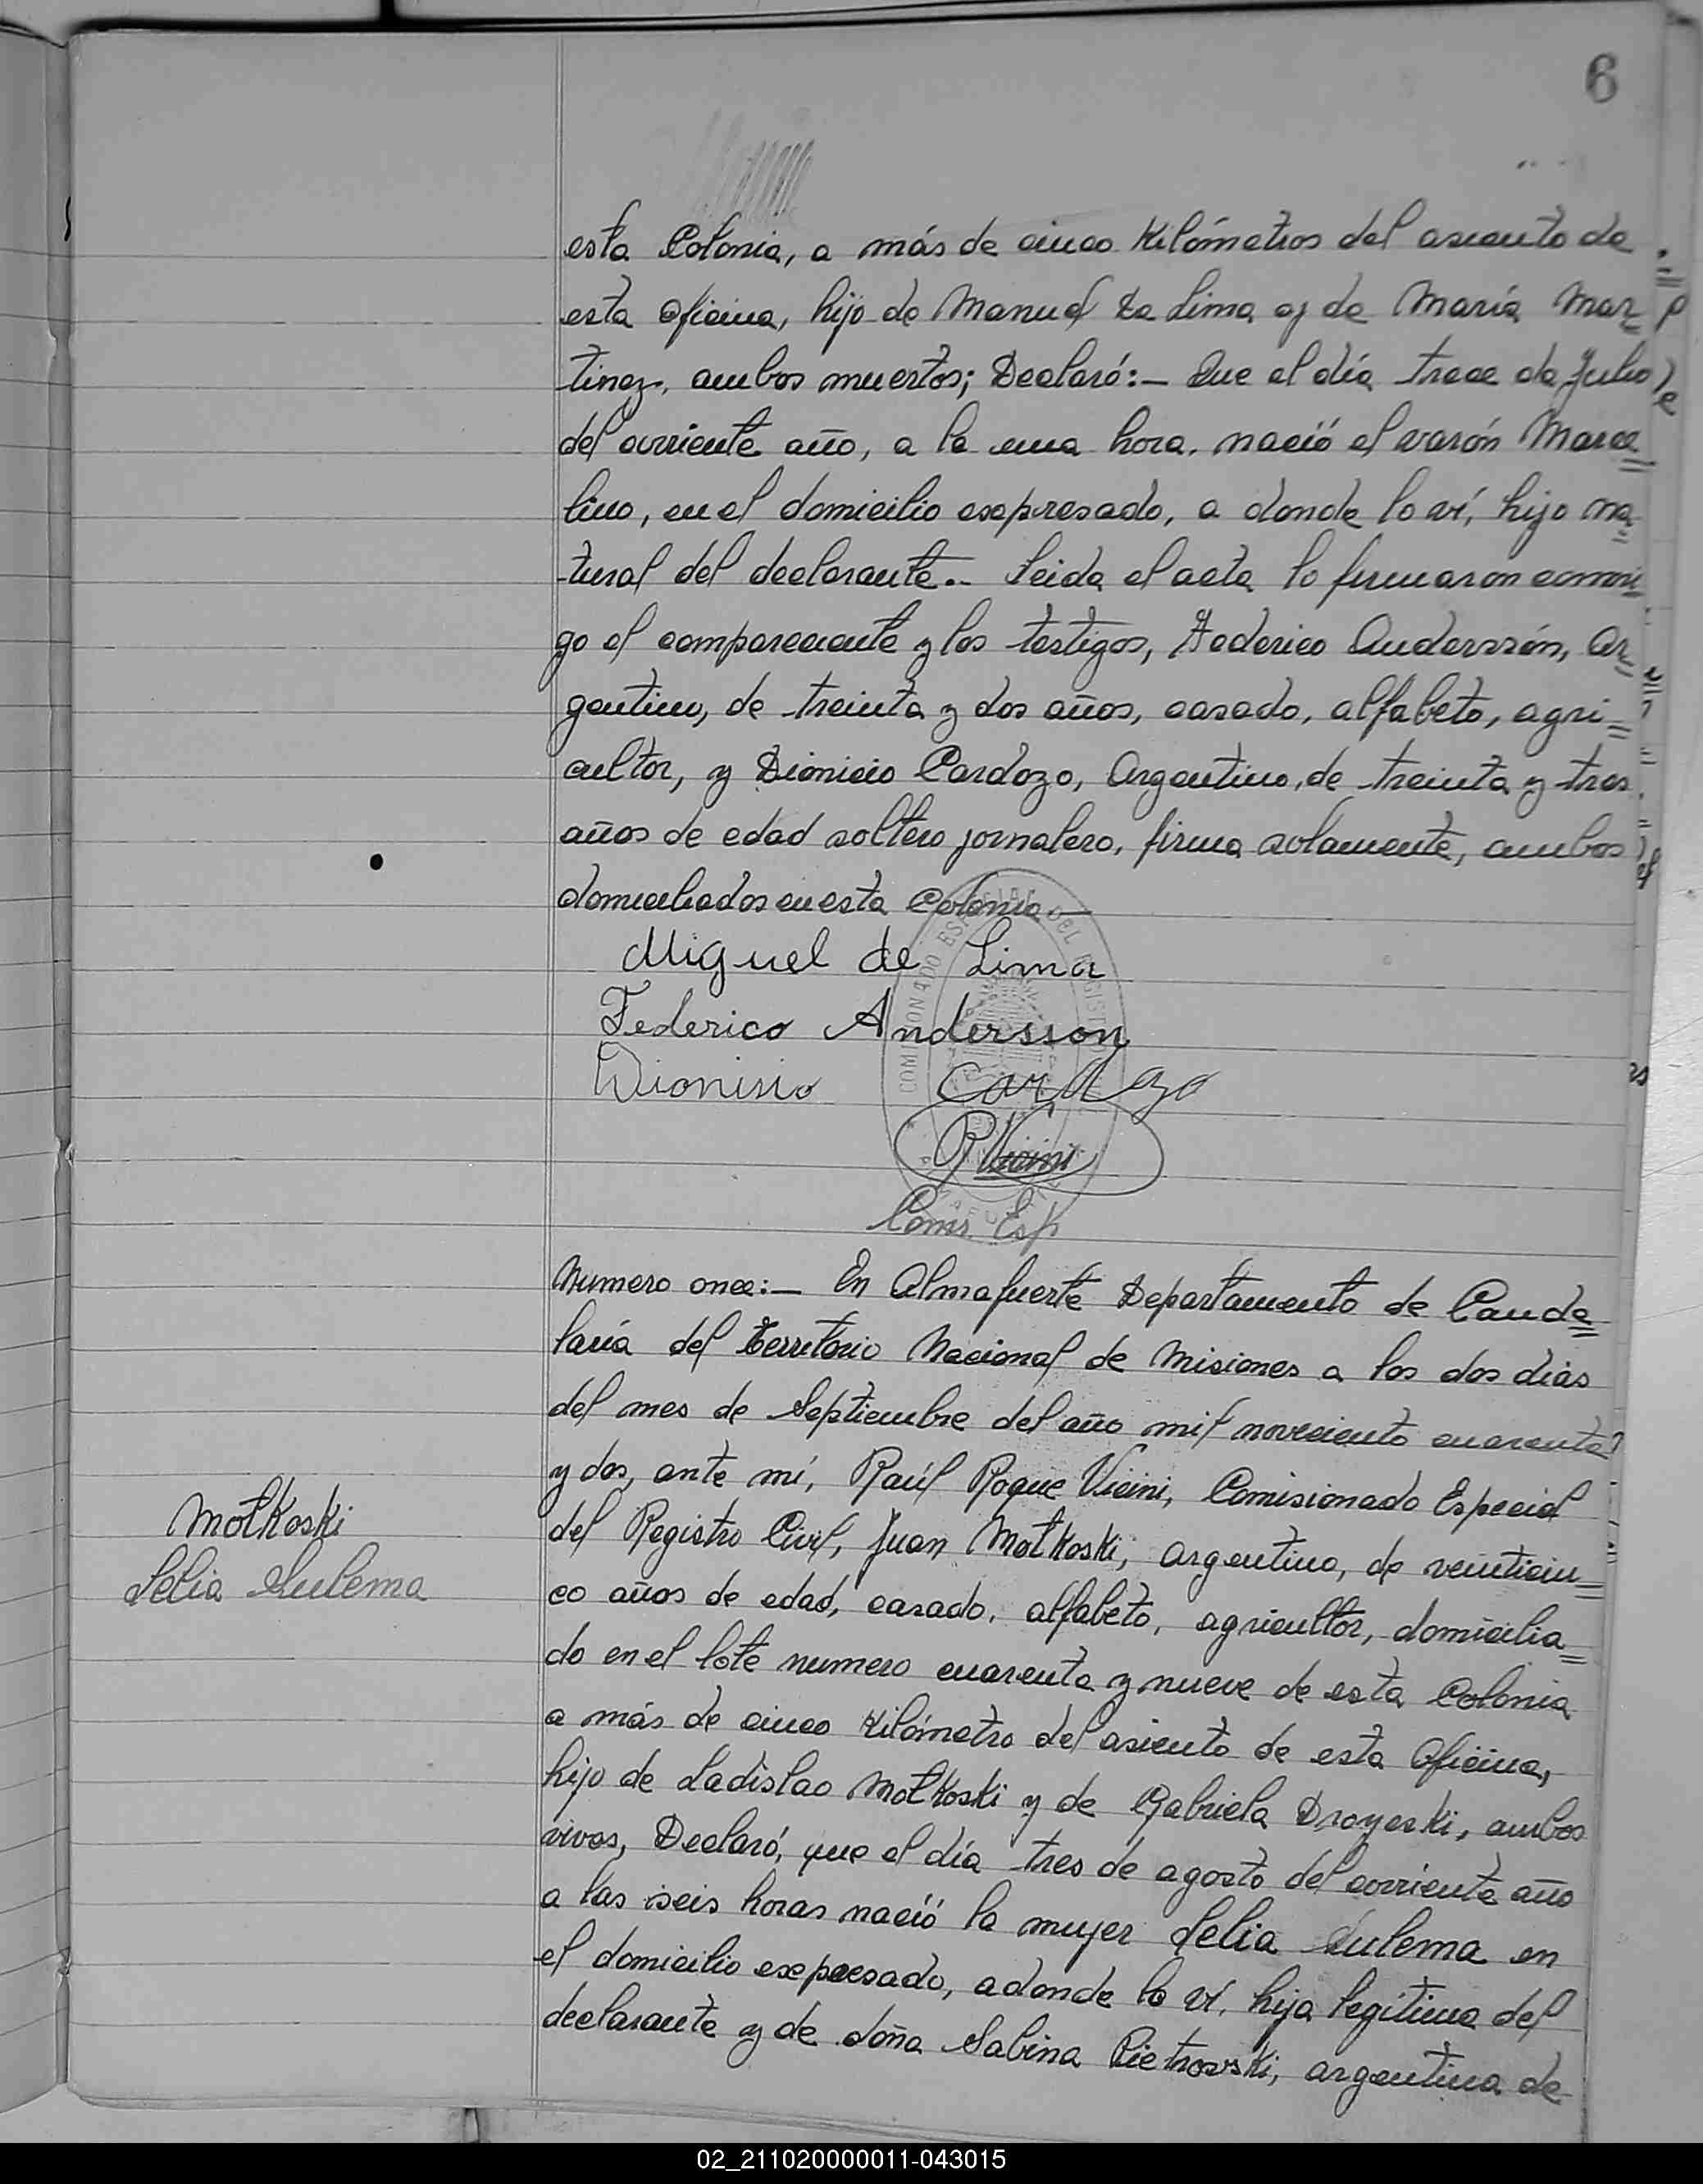 6
esta Colonia, a más de cinco Kilómetros del asiento de
esta oficina, hijo de Manuel De Lima y de María Mar=
tinez, ambos muertos; Declaró:- Que el día trece de Julio
del corriente año, a la una hora, nació el varón Marce=
lino, en el domicilio esxpresado, a donde lo ví, hijo na=
tural del declarante.- Leida el acta lo firmaron conmi=
go el compareciente y los testigos, Federico Anderssón, Ar=
gentino, de treinta y dos años, casado, alfabeto, agri=
cultor, y Dionicio Cardozo, Argentino, de treinta y tres
años de edad soltero jornalero, firma solamente, ambos
domiciliados en esta Colonia-
Miguel de Lima
Federico Andersson
Dionisio Cardozo
R Vicini
Coms. Esp
Numero once:- En Almafuerte Departamento de Cande=
laria del Territorio Nacional de Misiones a los dos dias
del mes de Septiembre del año mil noveciento cuarenta
y dos, ante mí, Raúl Roque Vicini, Comisionado Especial
Motkoski
del Registro Civil, Juan Motkoski, argentino, de veinticin=
Selia Sulema
co años de edad, casado, alfabeto, agricultor, domicilia=
do en el lote numero cuarenta y nueve de esta Colonia
a más de cinco Kilómetro del asiento de esta Oficina,
hijo de Ladislao Motkoski y de Gabriela Droyeski, ambos
vivos, Declaró, que el día tres de agosto del corriente año
a las seis horas nació la mujer Selia Sulema en
el domicilio esxpresado, adonde lo ví, hija legítima del
declarante y de doña Sabina Pietrowski, argentina de
02_211020000011-043015